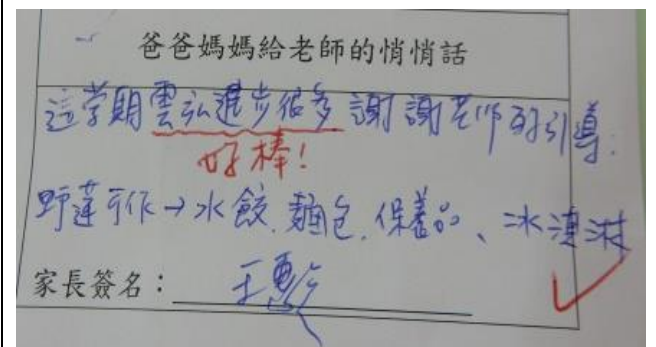 爸爸媽媽給老師的悄悄話
這學期雲弘進步很多 謝謝老師的引導.
好棒!
野蓮可作→水餃.麵包.保養品、冰淇淋
家長簽名：王